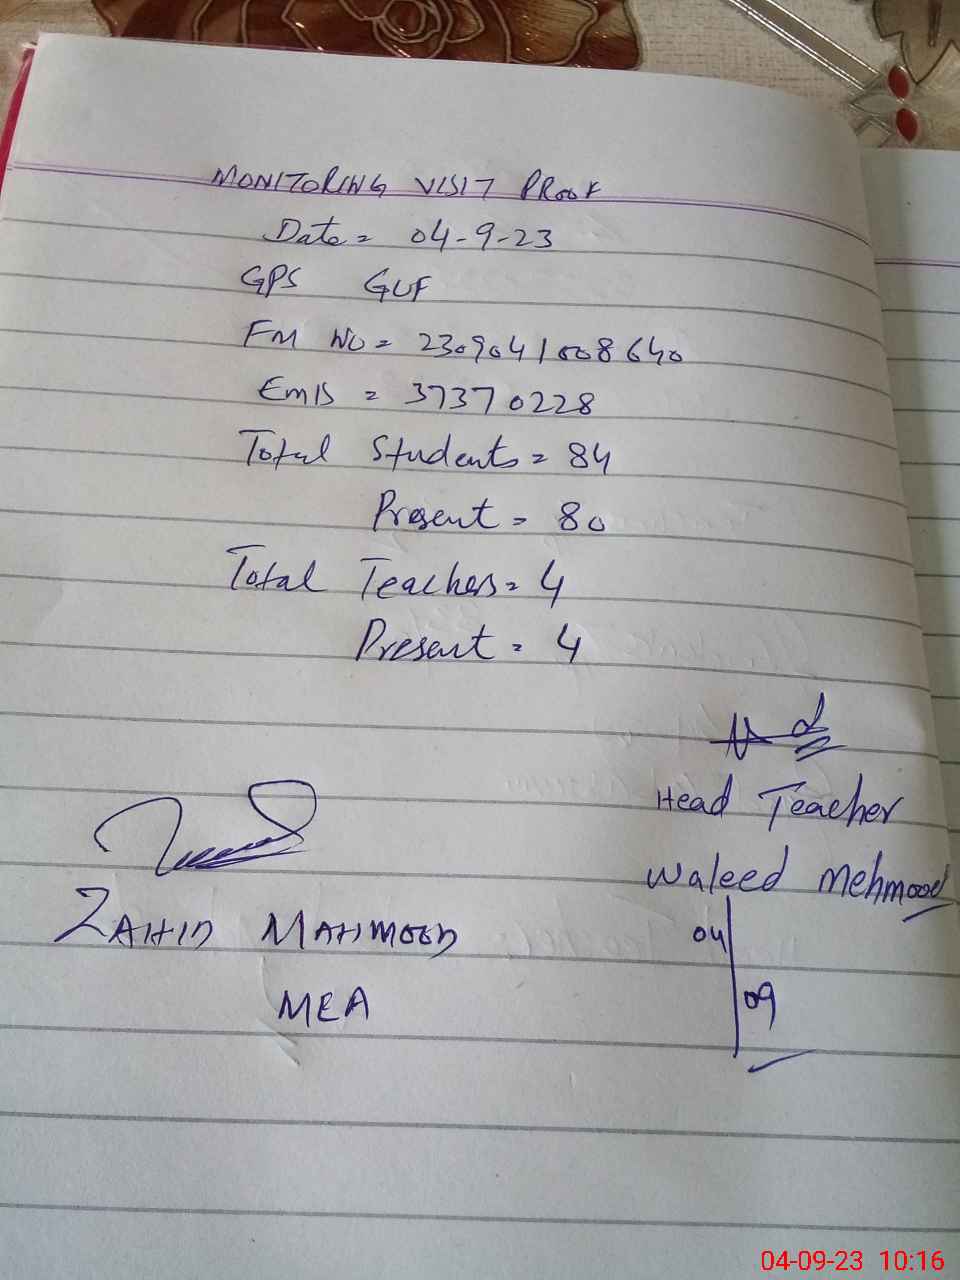 MONITORING VISIT PROOF
Date = 04-9-23
GPS GUF
FM NO = 2309041008640
Emis = 37370228
Total Students = 84
Present = 80
Total Teachers = 4
Present = 4
Head Teacher
Waleed Mehmood
04
09
ZAHID MAHMOOD
MEA
04-09-23 10:16